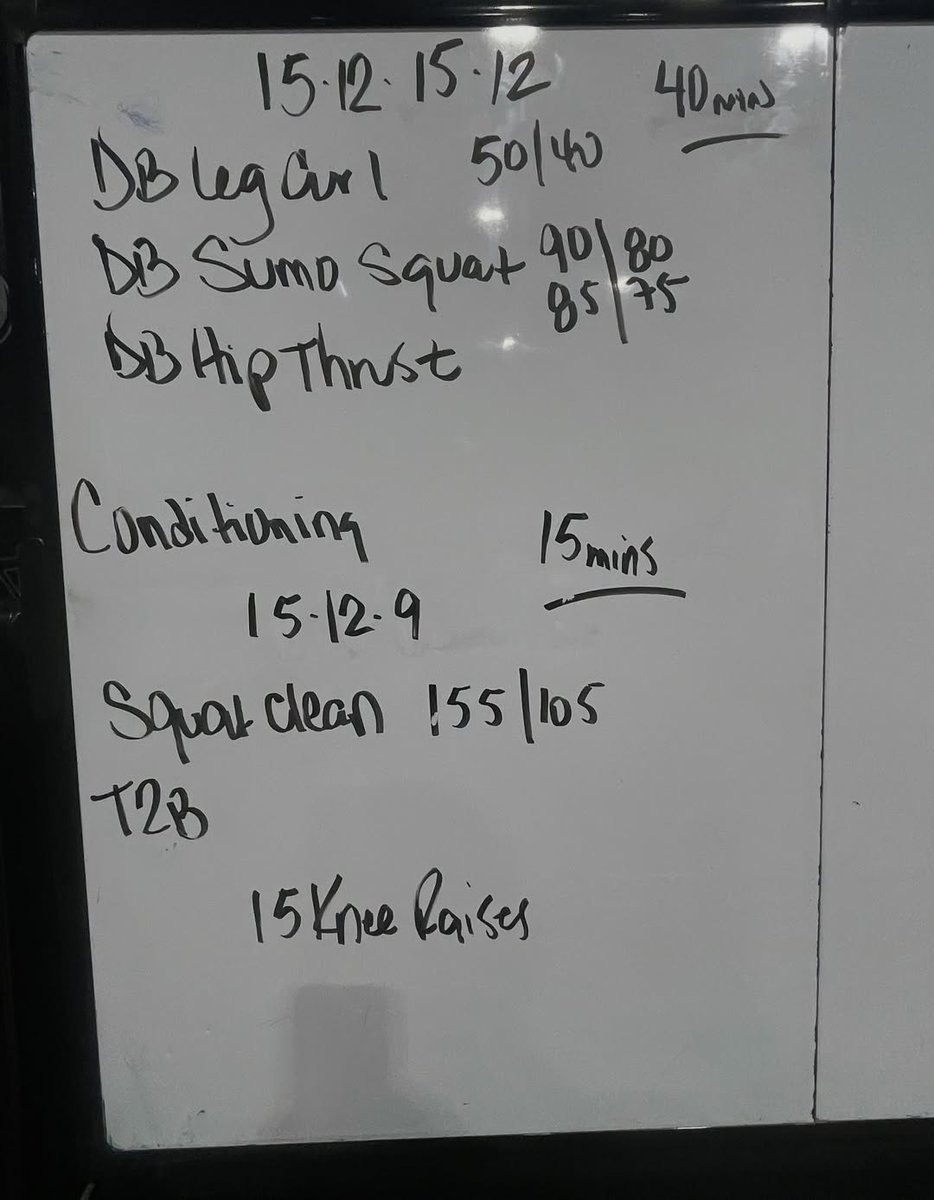 15·12·15·12 40 mins
DB Leg Curl 50/40
DB Sumo Squat 90/80
85/75
DB Hip Thrust
Conditioning 15 mins
15·12·9
Squat clean 155/105
T2B
15 Knee Raises